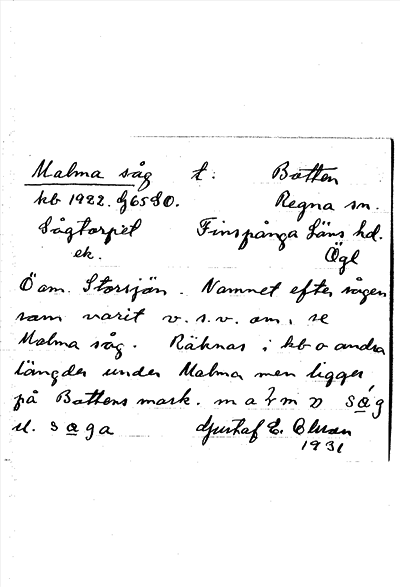 Malma såg t. Botten
kb 1922. dj6580. Regna sn.
Sågtorpet Finspånga Läns hd.
ek. Ögl
Ö om Storsjön. Namnet efter sågen
som varit v.s.v. om, se
Malma såg. Räknas i kb o andra
längder under Malma men ligger
på Bottens mark. m a m såg
el. saga Gustaf E.
1931